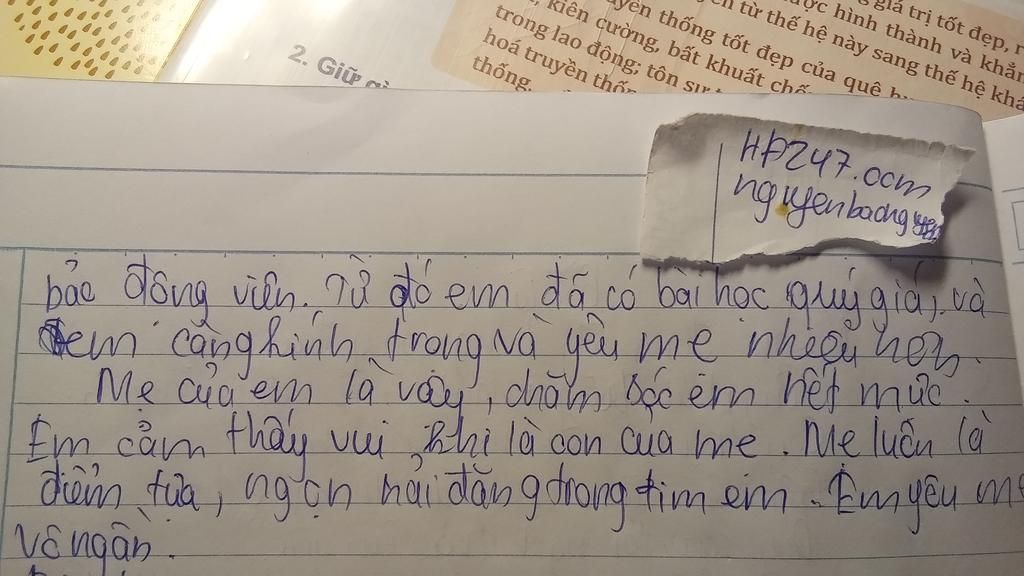 giá trị tốt đẹp, r
ợc hình thành và khẳn
yền thống tốt đẹp của quê h
n từ thế hệ này sang thế hệ khá
, kiên cường, bất khuất chố
trong lao động; tôn sư
hoá truyền thốn
thống.
2. Giữ gì
HP247.com
nguyenbaongyen
bảo động viên. Từ đó em đã có bài học quý giá, và
em càng kính trọng và yêu mẹ nhiều hơn.
Mẹ của em là vậy, chăm sóc em hết mức.
Em cảm thấy vui khi là con của mẹ. Mẹ luôn là
điểm tựa, ngọn hải đăng trong tim em. Em yêu mẹ
vô ngần.